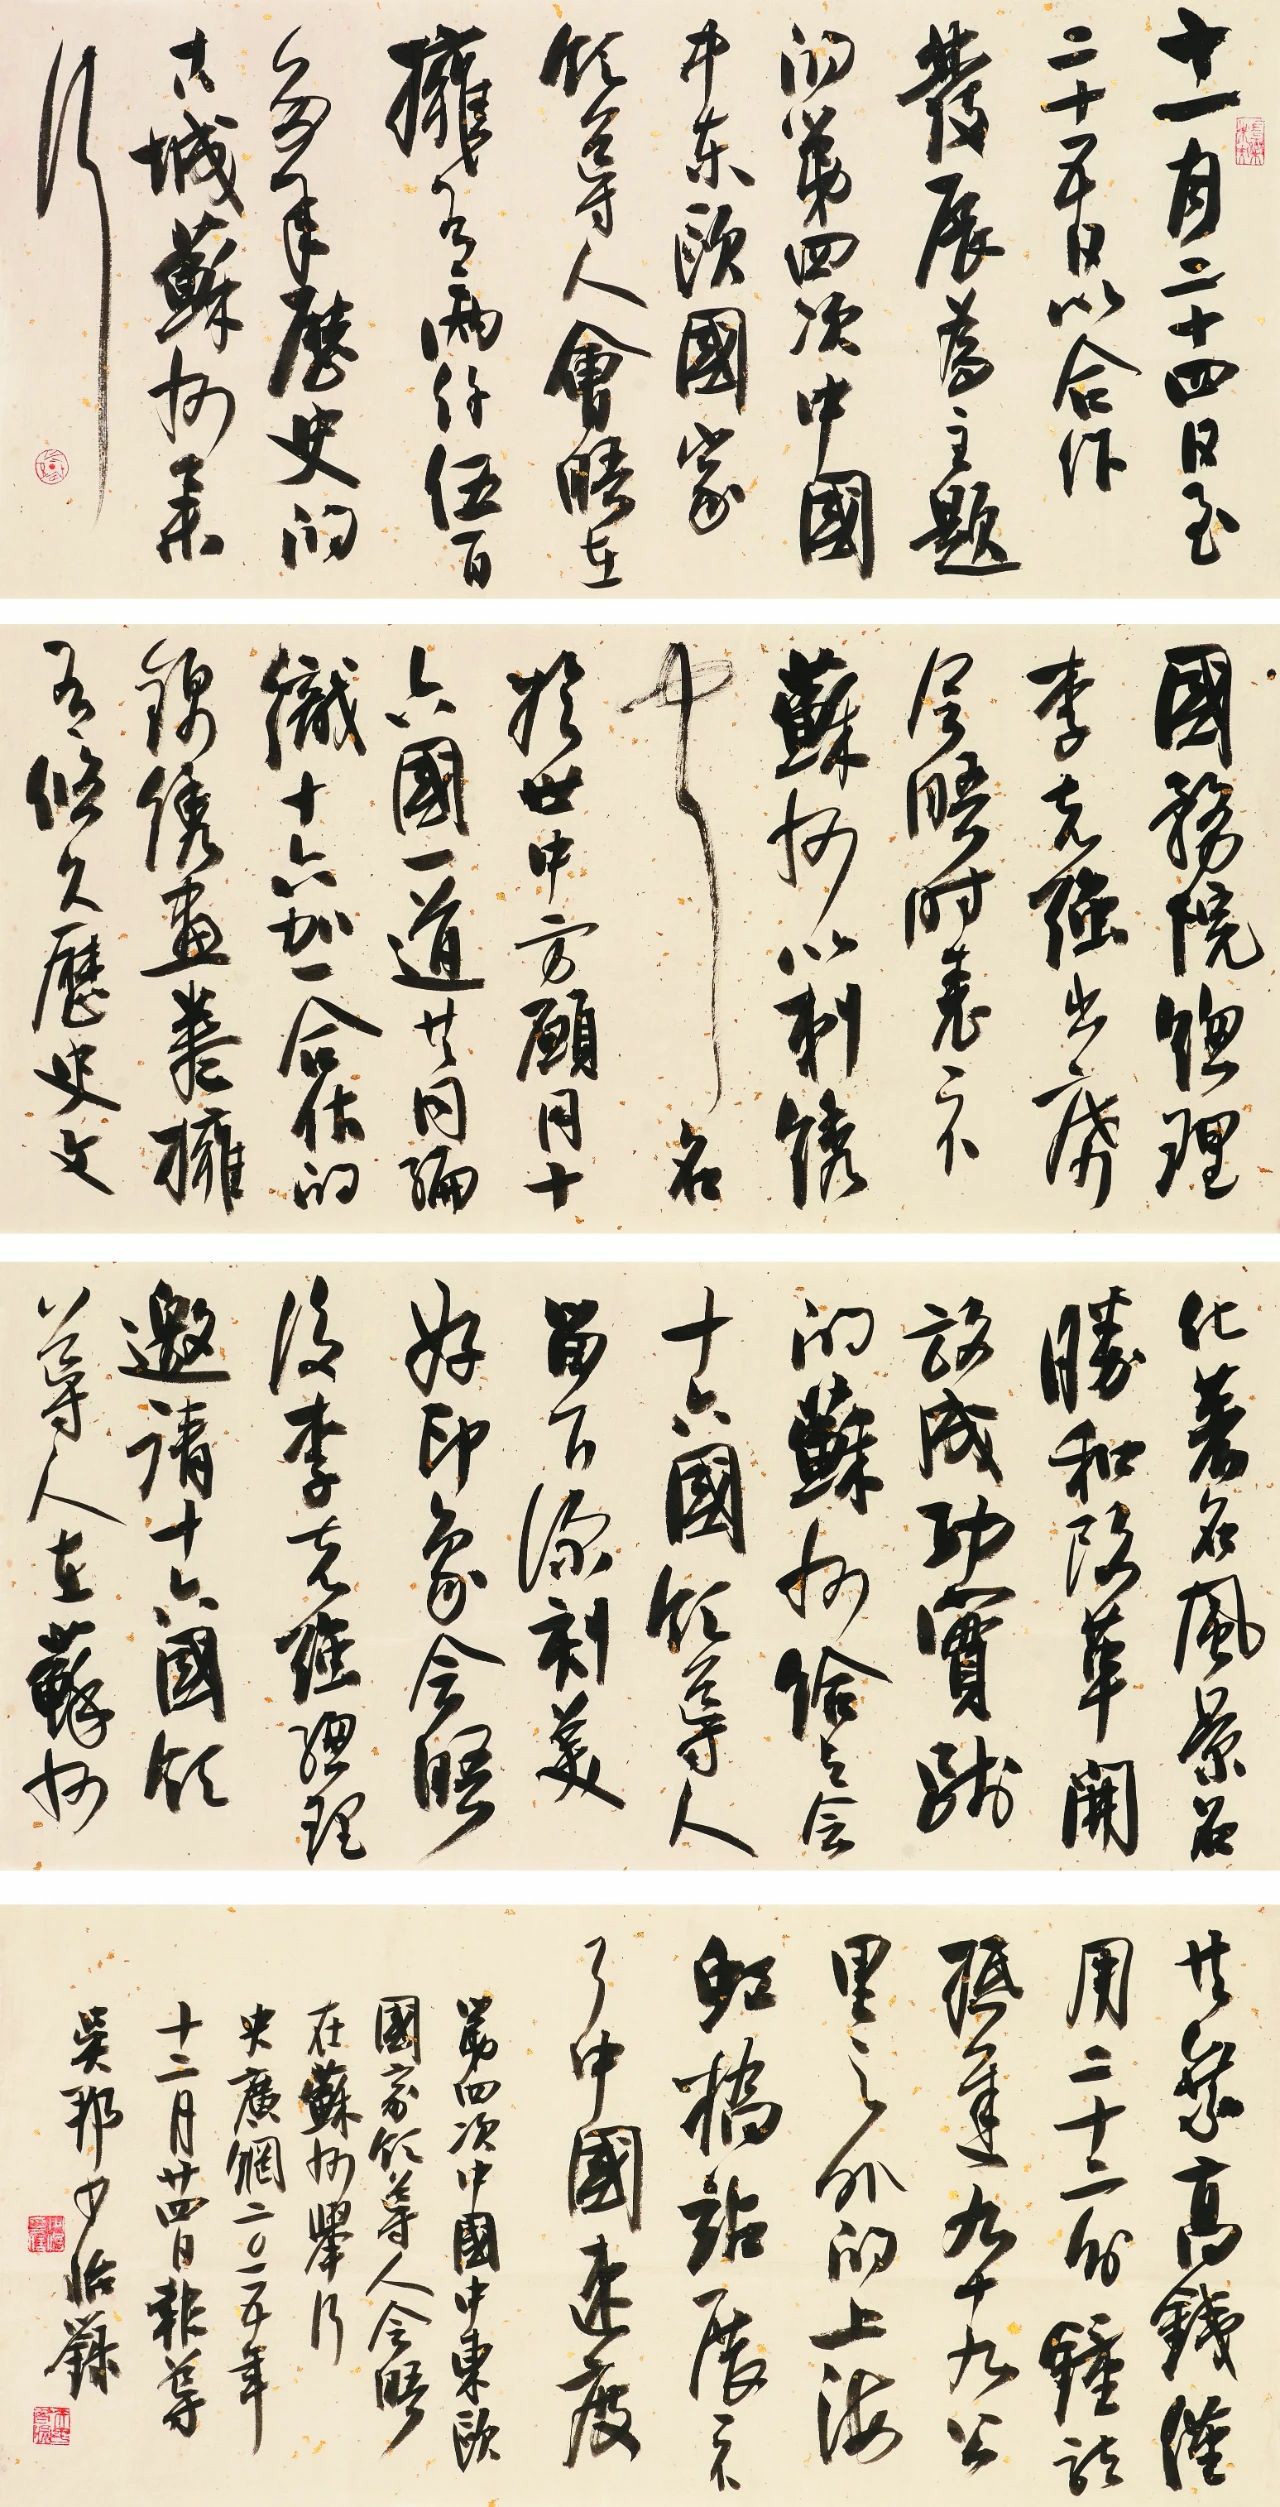 十一月二十四日至
二十五日以合作
發展為主題
的第四次中國
中东歐國家
領導人會晤在
擁有兩仟伍百
多年歷史的
古城蘇州舉
行
國務院總理
李克強出席
會晤時表示
蘇州以刺繡
名
於世中方願同十
六國一道共同編
織十六加一合作的
錦繡畫卷擁
有悠久歷史文
化著名風景名
勝和改革開
放成功實踐
的蘇州給与会
十六國領導人
留下深刻美
好印象会晤
後李克強總理
邀請十六國領
導人在蘇州
共乘高鐵僅
用二十二分鐘就
抵達九十九公
里之外的上海
虹橋站展示
了中國速度
第四次中國中東歐
國家領導人会晤
在蘇州舉行
央廣網二〇一五年
十二月廿四日報導
吳郡少怡錄